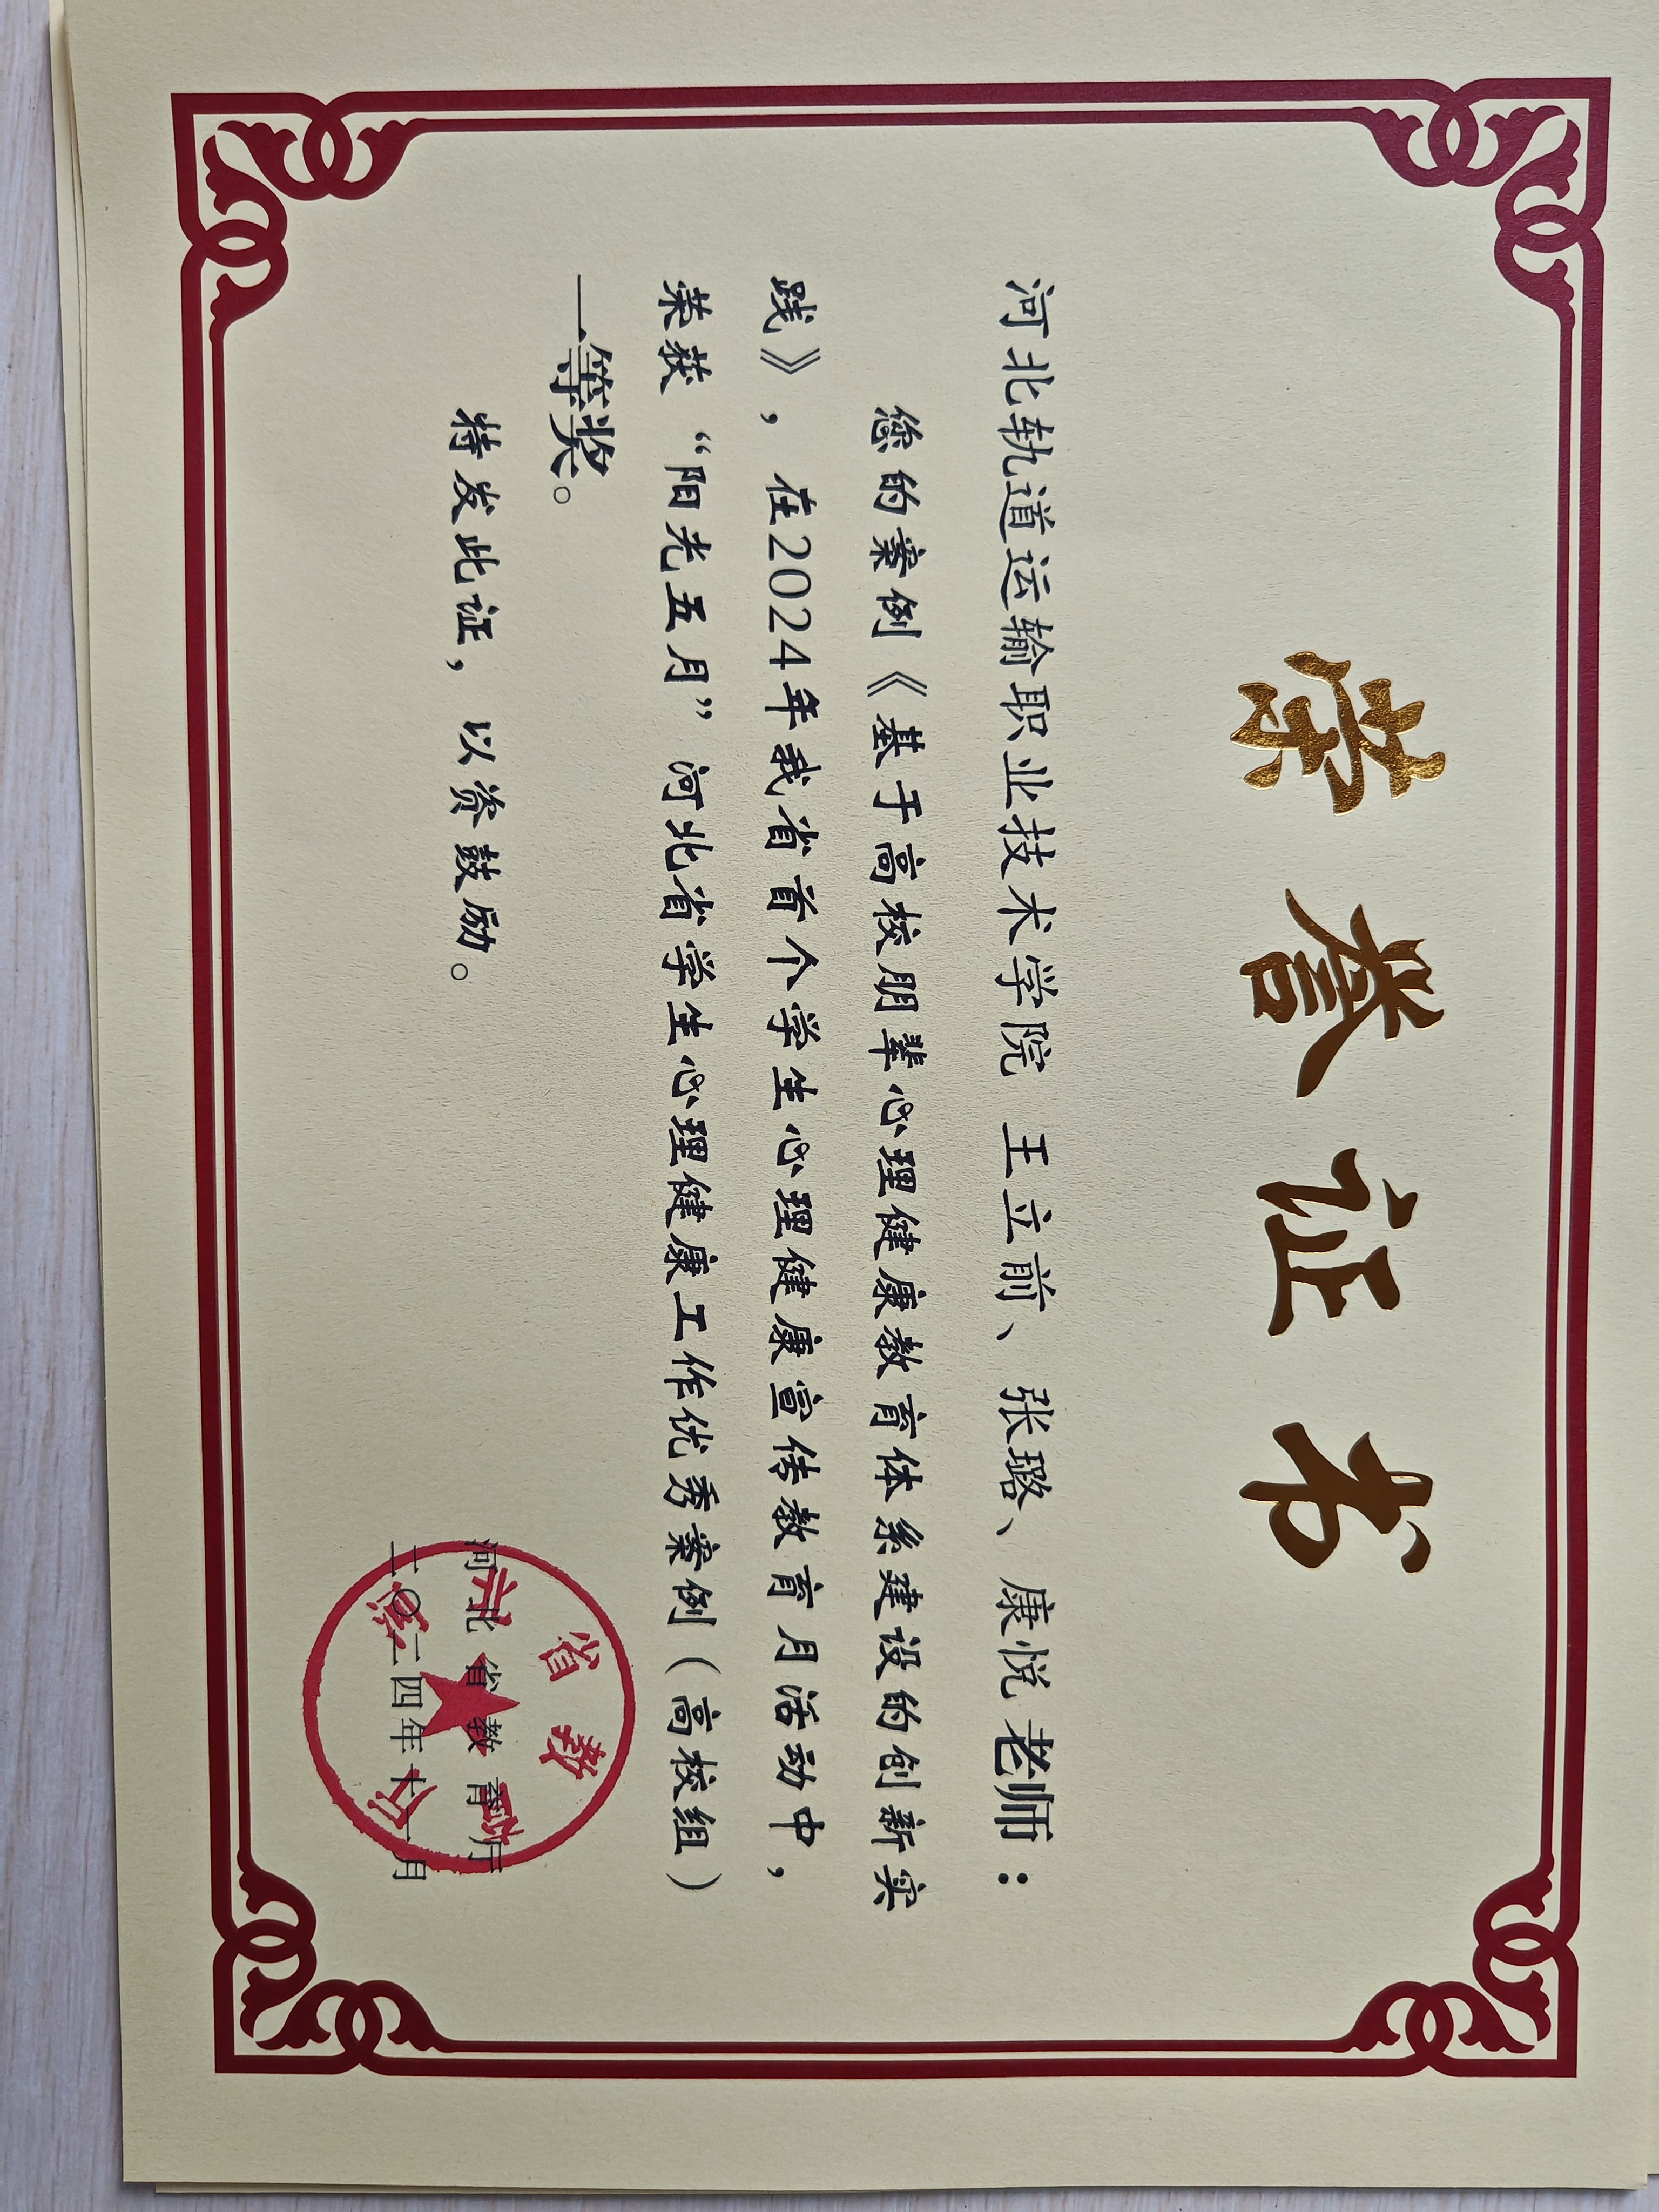 荣誉证书
河北轨道运输职业技术学院 王立前、张璐、康悦老师：
您的案例《基于高校朋辈心理健康教育体系建设的创新实
践》，在2024年我省首个学生心理健康宣传教育月活动中，
荣获“阳光五月”河北省学生心理健康工作优秀案例（高校组）
一等奖。
特发此证，以资鼓励。
河北省教育厅
二〇二四年十一月